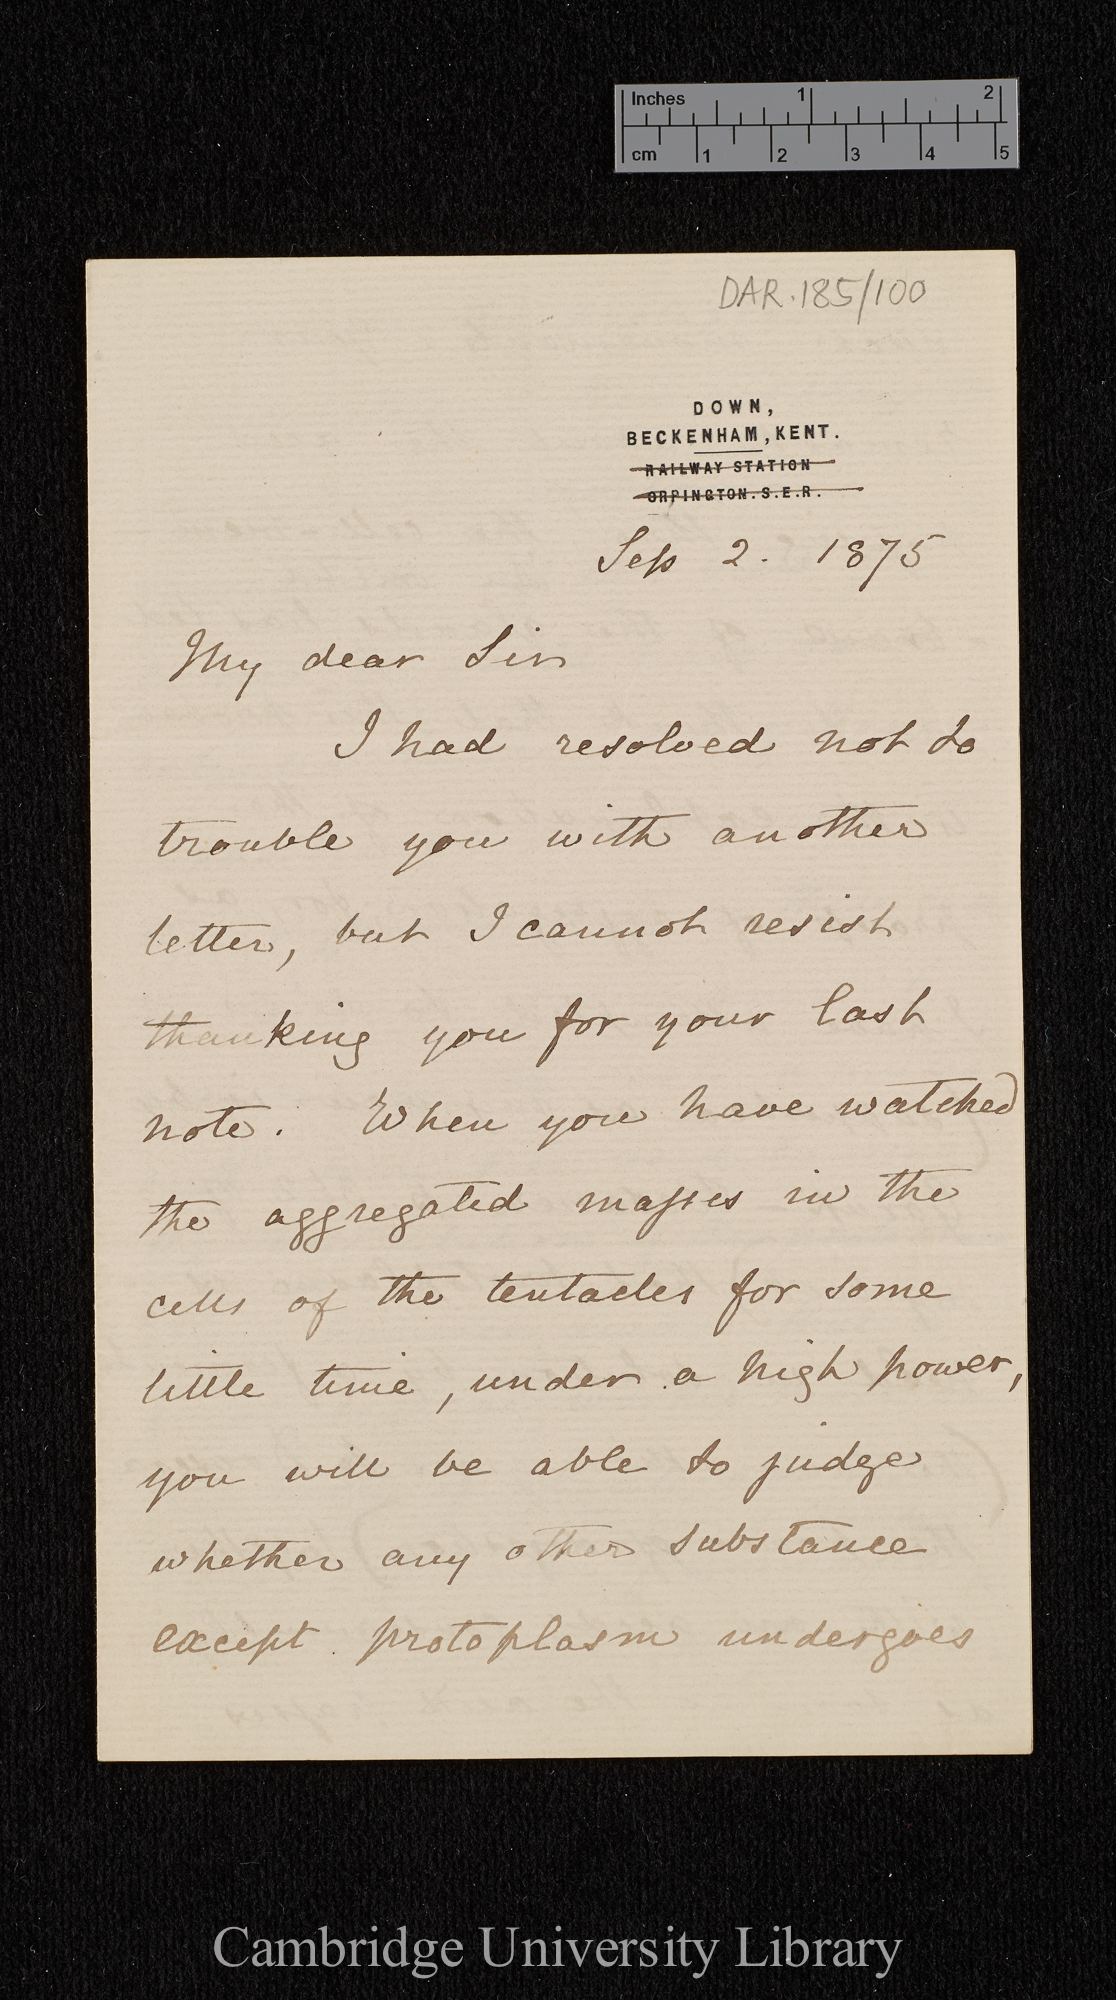 Inches 1 2
cm 1 2 3 4 5
DAR.185/100
DOWN,
BECKENHAM, KENT.
RAILWAY STATION
ORPINGTON. S.E.R.
Sep 2. 1875
My dear Sir
I had resolved not to
trouble you with another
letter, but I cannot resist
thanking you for your last
note. When you have watched
the aggregated masses in the
cells of the tentacles for some
little time, under a high power,
you will be able to judge
whether any other substance
except protoplasm undergoes
Cambridge University Library